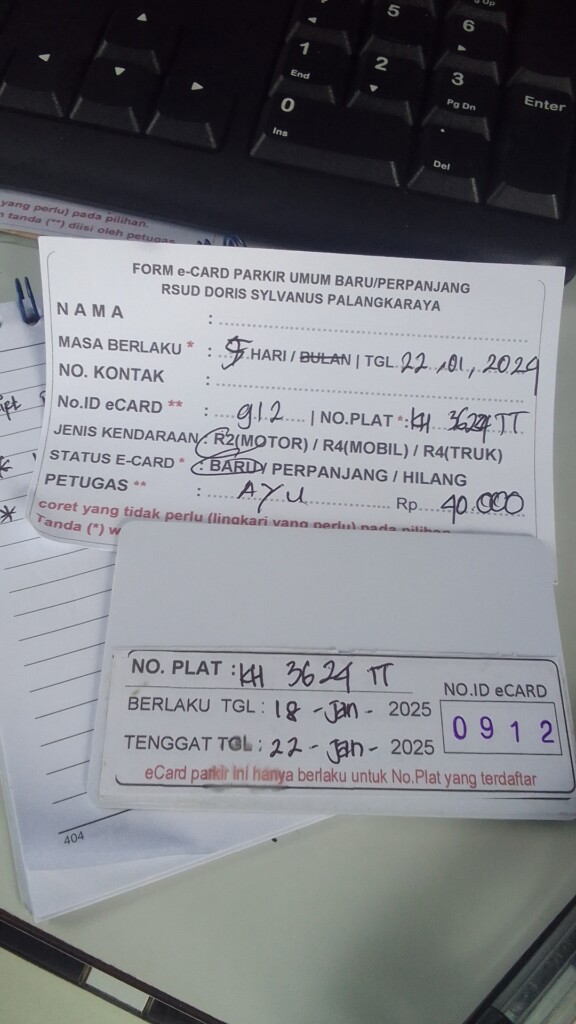 5
6
1
End
2
3
Pg Dn
Enter
0
Ins
.
Del
yang perlu) pada pilihan.
tanda (**) diisi oleh petugas
FORM e-CARD PARKIR UMUM BARU/PERPANJANG
RSUD DORIS SYLVANUS PALANGKARAYA
NAMA :
MASA BERLAKU * : 5 HARI / BULAN | TGL. 22, 01, 2024
NO. KONTAK :
No.ID eCARD ** : 912 | NO.PLAT *: KH 3624 TT
JENIS KENDARAAN : R2(MOTOR) / R4(MOBIL) / R4(TRUK)
STATUS E-CARD * : BARU / PERPANJANG / HILANG
PETUGAS ** : AYU Rp. 40.000
coret yang tidak perlu (lingkari yang perlu) pada pilihan
Tanda (*) w
NO. PLAT : KH 3624 TT
BERLAKU TGL : 18 - Jan - 2025 NO.ID eCARD
TENGGAT TGL : 22 - Jan - 2025 0912
eCard parkir ini hanya berlaku untuk No.Plat yang terdaftar
404